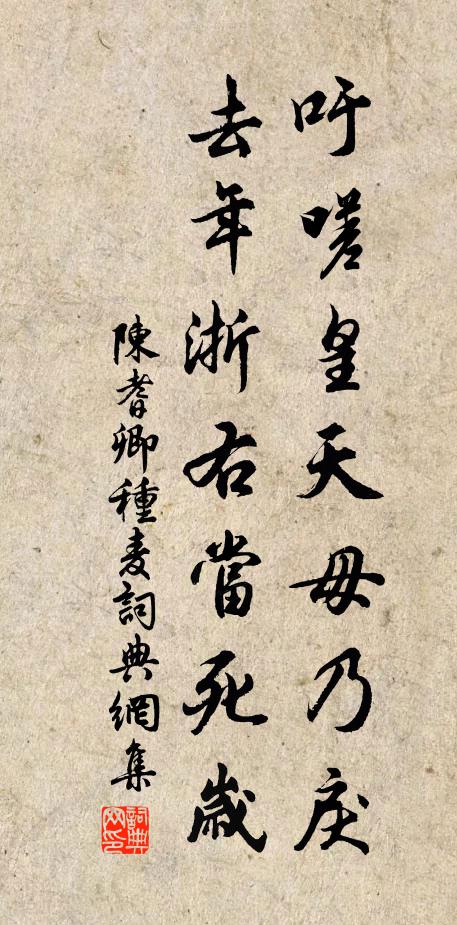 吁嗟皇天毋乃戾
去年浙右當死歲
陳耆卿種麦詞典網集
詞典網印